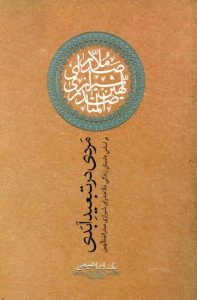 مردی در تبعید ابدی
بر اساس داستان زندگی ملاصدرای شیرازی صدرالمتالهین
نادر ابراهیمی